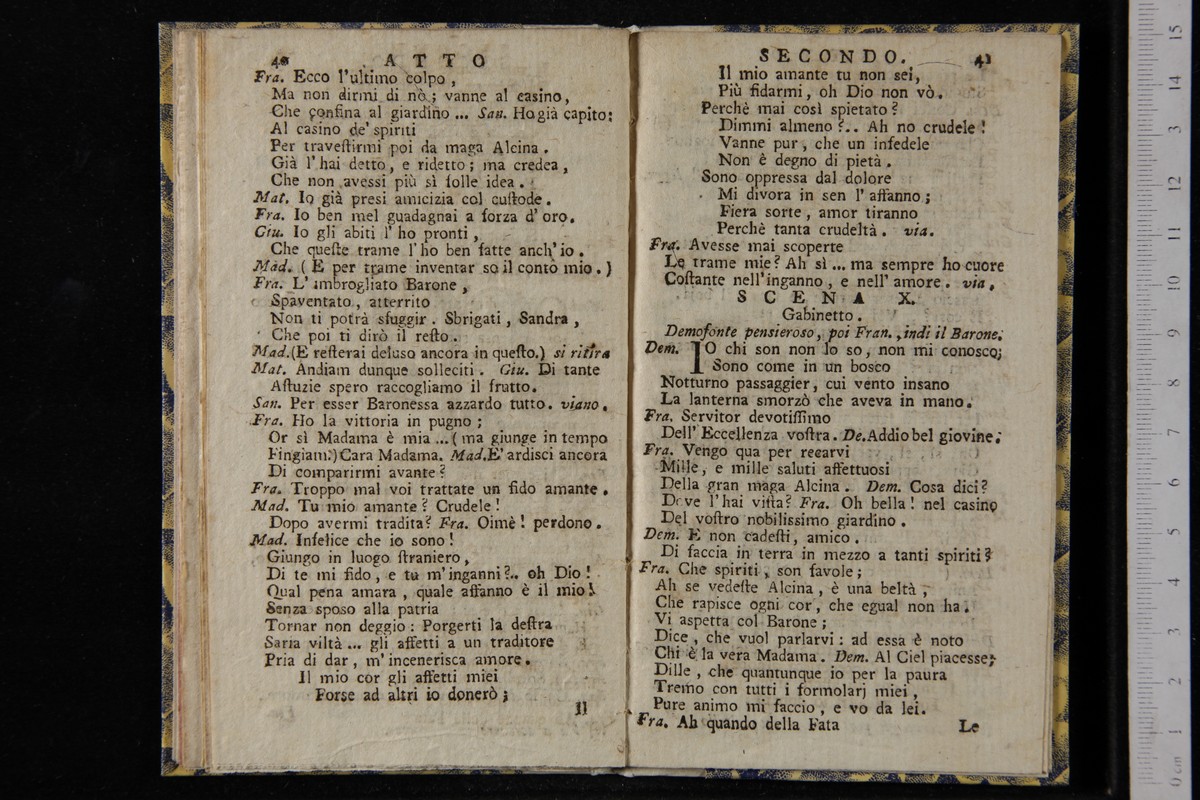 40 ATTO
Fra. Ecco l'ultimo colpo,
Ma non dirmi di nò; vanne al casino,
Che confina al giardino ... San. Ho già capito:
Al casino de' spiriti
Per travestirmi poi da maga Alcina.
Già l'hai detto, e ridetto; ma credea,
Che non avessi più sì folle idea.
Mat. Io già presi amicizia col custode.
Fra. Io ben mel guadagnai a forza d'oro.
Giu. Io gli abiti l'ho pronti,
Che queste trame l'ho ben fatte anch'io.
Mad. (E per trame inventar so il conto mio.)
Fra. L'imbrogliato Barone,
Spaventato, atterrito
Non ti potrà sfuggir. Sbrigati, Sandra,
Che poi ti dirò il resto.
Mad. (E resterai deluso ancora in questo.) si ritira
Mat. Andiam dunque solleciti. Giu. Di tante
Astuzie spero raccogliamo il frutto.
San. Per esser Baronessa azzardo tutto. viano.
Fra. Ho la vittoria in pugno;
Or sì Madama è mia ... (ma giunge in tempo
Fingiam:) Cara Madama. Mad. E' ardisci ancora
Di comparirmi avante?
Fra. Troppo mal voi trattate un fido amante.
Mad. Tu mio amante? Crudele!
Dopo avermi tradita? Fra. Oimè! perdono.
Mad. Infelice che io sono!
Giungo in luogo straniero,
Di te mi fido, e tu m'inganni?.. oh Dio!
Qual pena amara, quale affanno è il mio!
Senza sposo alla patria
Tornar non deggio: Porgerti la destra
Saria viltà ... gli affetti a un traditore
Pria di dar, m'incenerisca amore.
Il mio cor gli affetti miei
Forse ad altri io donerò;
Il
SECONDO. 41
Il mio amante tu non sei,
Più fidarmi, oh Dio non vò.
Perchè mai così spietato?
Dimmi almeno?.. Ah no crudele!
Vanne pur, che un infedele
Non è degno di pietà.
Sono oppressa dal dolore
Mi divora in sen l'affanno;
Fiera sorte, amor tiranno
Perchè tanta crudeltà. via.
Fra. Avesse mai scoperte
Le trame mie? Ah sì ... ma sempre ho cuore
Costante nell'inganno, e nell'amore. via.
SCENA X.
Gabinetto.
Demofonte pensieroso, poi Fran., indi il Barone.
Dem. IO chi son non lo so, non mi conosco;
Sono come in un bosco
Notturno passaggier, cui vento insano
La lanterna smorzò che aveva in mano.
Fra. Servitor devotissimo
Dell'Eccellenza vostra. De. Addio bel giovine.
Fra. Vengo qua per recarvi
Mille, e mille saluti affettuosi
Della gran maga Alcina. Dem. Cosa dici?
Dove l'hai vista? Fra. Oh bella! nel casino
Del vostro nobilissimo giardino.
Dem. E non cadesti, amico.
Di faccia in terra in mezzo a tanti spiriti?
Fra. Che spiriti, son favole;
Ah se vedeste Alcina, è una beltà,
Che rapisce ogni cor, che egual non ha.
Vi aspetta col Barone;
Dice, che vuol parlarvi: ad essa è noto
Chi è la vera Madama. Dem. Al Ciel piacesse;
Dille, che quantunque io per la paura
Tremo con tutti i formolarj miei,
Pure animo mi faccio, e vo da lei.
Fra. Ah quando della Fata
Le
15
14
13
12
11
10
9
8
7
6
5
4
3
2
1
0 cm